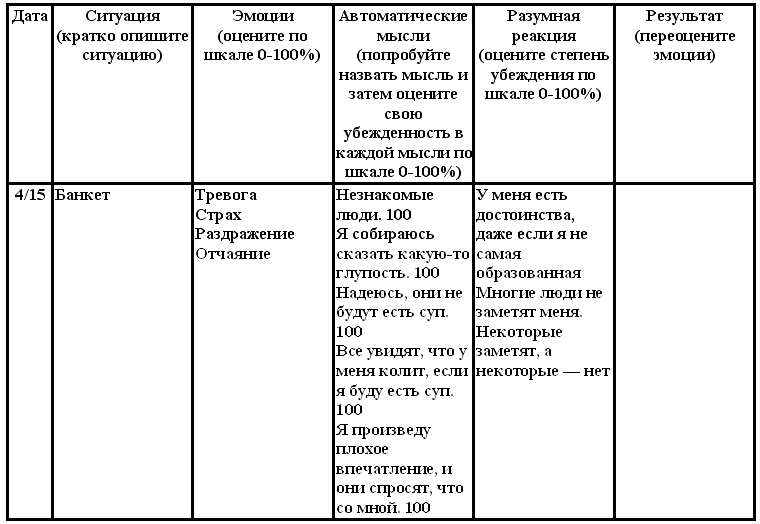 Дата
Ситуация
(кратко опишите
ситуацию)
Эмоции
(оцените по
шкале 0-100%)
Автоматические
мысли
(попробуйте
назвать мысль и
затем оцените
свою
убежденность в
каждой мысли по
шкале 0-100%)
Разумная
реакция
(оцените степень
убеждения по
шкале 0-100%)
Результат
(переоцените
эмоции)
4/15
Банкет
Тревога
Страх
Раздражение
Отчаяние
Незнакомые
люди. 100
Я собираюсь
сказать какую-то
глупость. 100
Надеюсь, они не
будут есть суп.
100
Все увидят, что у
меня колит, если
я буду есть суп.
100
Я произведу
плохое
впечатление, и
они спросят, что
со мной. 100
У меня есть
достоинства,
даже если я не
самая
образованная
Многие люди не
заметят меня.
Некоторые
заметят, а
некоторые — нет